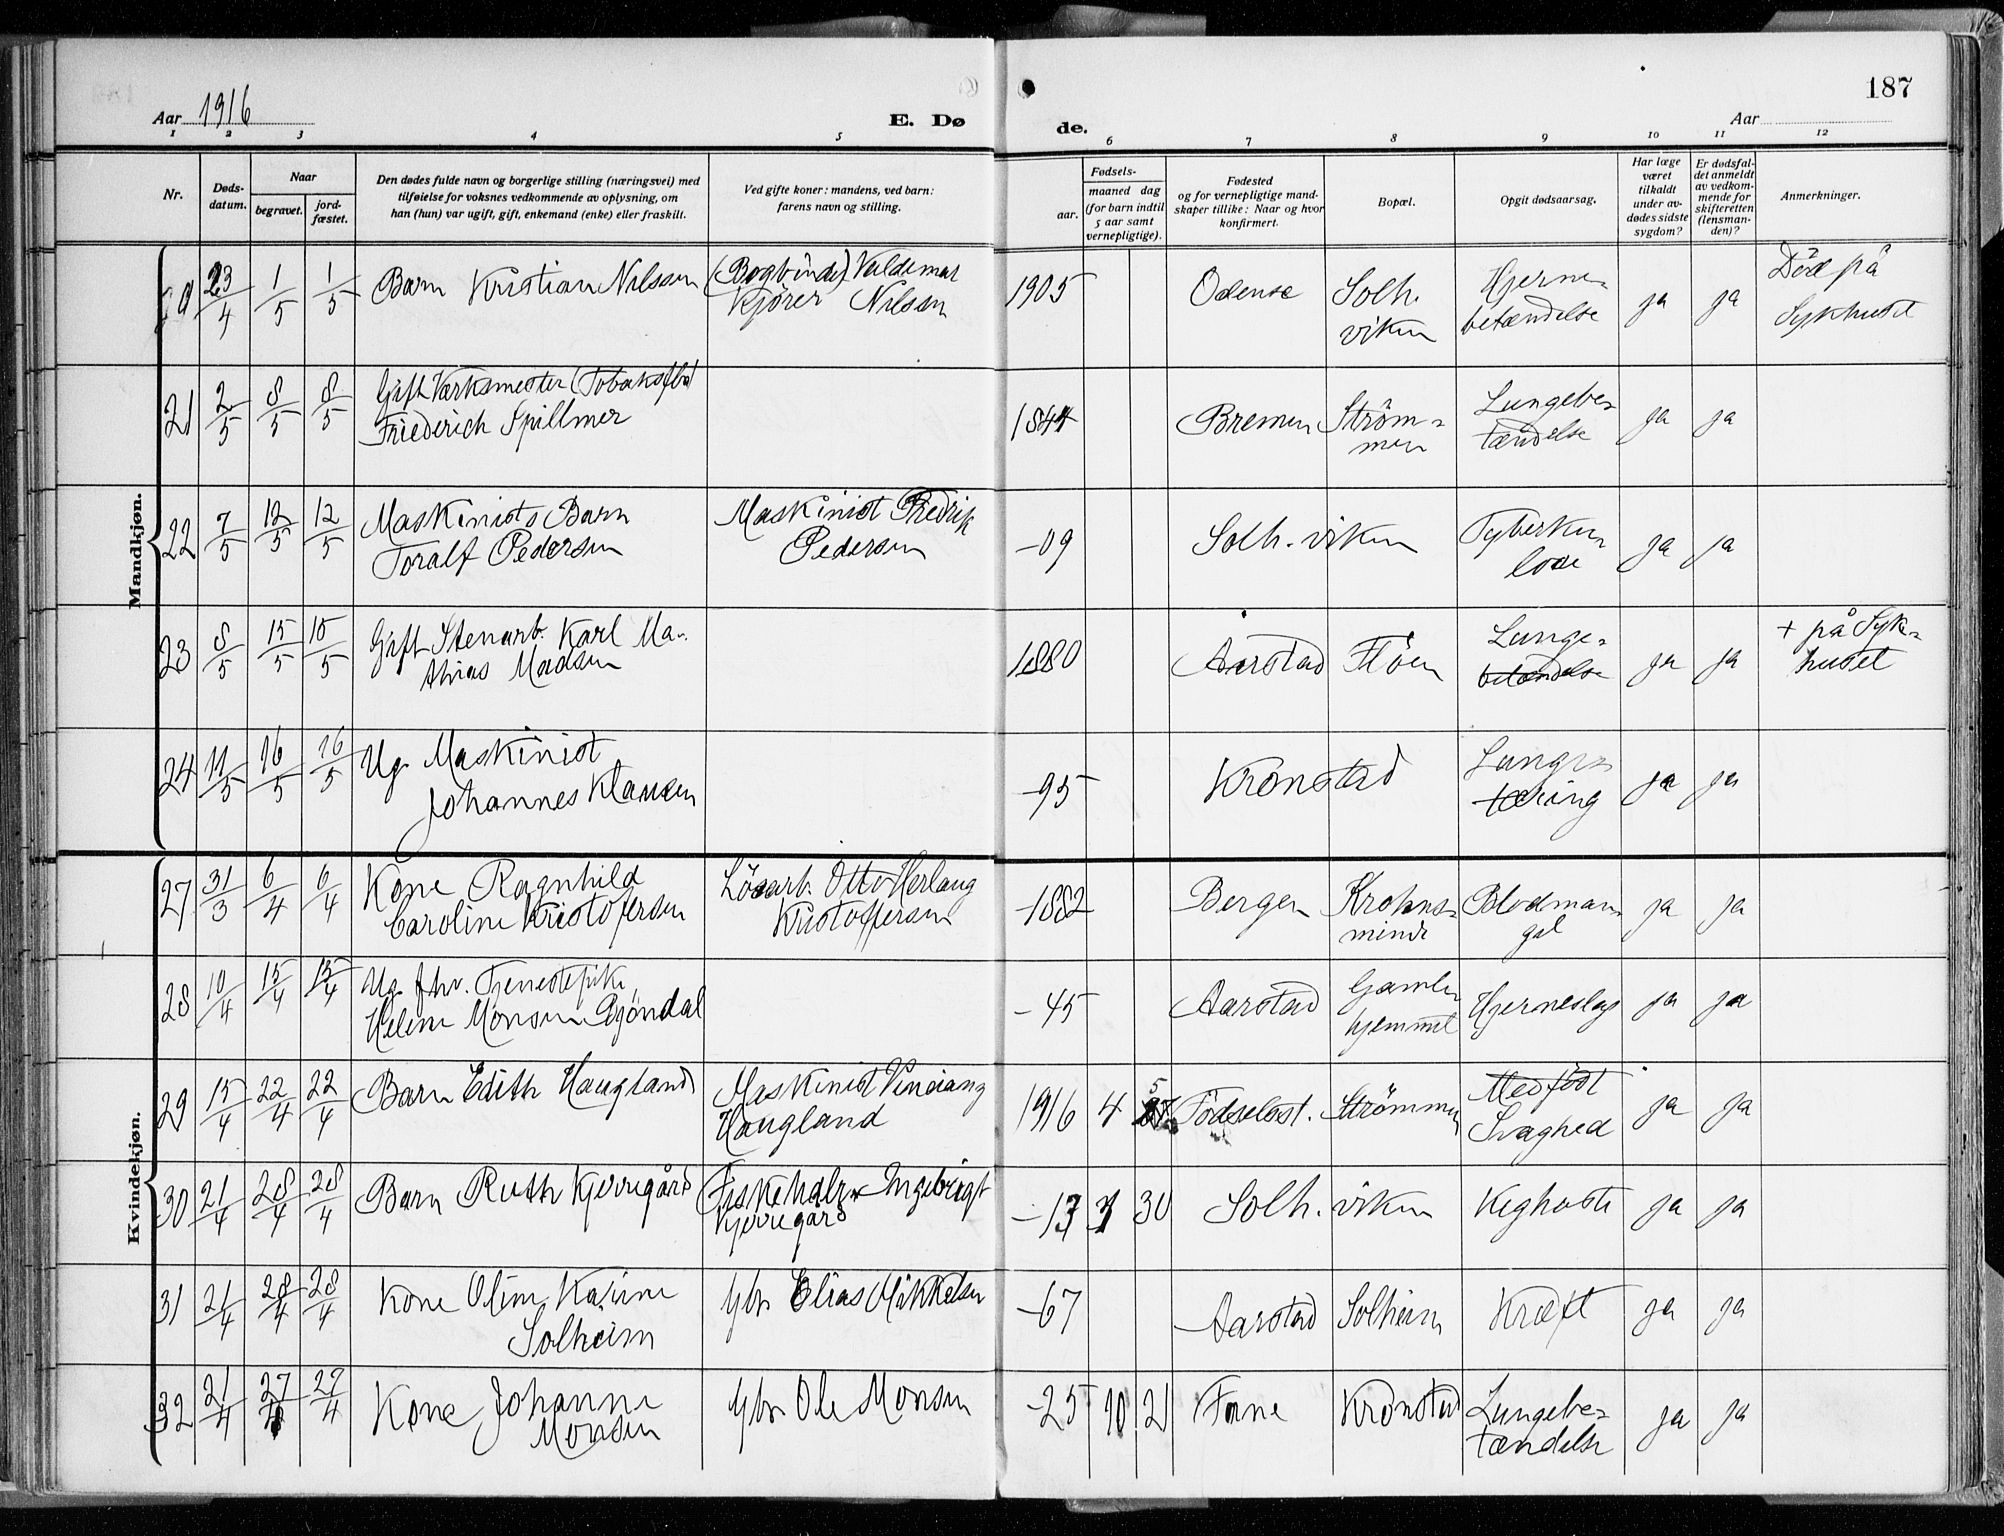 187
Aar 1916
E. Dø
de.
Aar
1 2 3 4 5 6 7 8 9 10 11 12
Nr.
Døds-
datum.
Naar
begravet.
jord-
fæstet.
Den dødes fulde navn og borgerlige stilling (næringsvei) med
tilføielse for voksnes vedkommende av oplysning, om
han (hun) var ugift, gift, enkemand (enke) eller fraskilt.
Ved gifte koner: mandens, ved barn:
farens navn og stilling.
Fødsels-
aar.
maaned dag
(for barn indtil
5 aar samt
vernepligtige).
Fødested
og for vernepligtige mand-
skaper tillike: Naar og hvor
konfirmert.
Bopæl.
Opgit dødsaarsag.
Har læge
været
tilkaldt
under av-
dødes sidste
sygdom?
Er dødsfal-
det anmeldt
av vedkom-
mende for
skifteretten
(lensman-
den)?
Anmerkninger.
Mandkjøn.
23/4 1/5 1/5 Barn Kristian Nilssen (Bogbinder) Valdemar
Kjörer Nilsen
1905 Odense Solh.
viken
Hjerne-
betændelse
ja ja
Död på
Sykhuset
21 2/5 8/5 8/5 Gift Værksmester (Tobaksfbr)
Friederich Spillmer
1844 Bremen Ström-
men
Lungebe-
tændelse
ja ja
22 7/5 12/5 12/5 Maskinists Barn
Toralf Pedersen
Maskinist Fredrik
Pedersen
-09 Solh. viken Tyberku-
lose
ja ja
23 8/5 15/5 15/5 Gift Stenarb. Karl Ma-
thias Madsen
1880 Aarstad Flöen Lunge-
betændelse
ja ja
+ på Syke-
huset
24 11/5 16/5 16/5 Ug. Maskinist
Johannes Klausen
-95 Kronstad Lunge-
tæring
ja ja
Kvindekjøn.
27 31/3 6/4 6/4 Kone Ragnhild
Caroline Kristofersen
Lösarb. Otto Herlaug
Kristoffersen
-1882 Bergen Krohns-
minde
Blodman-
gel
ja ja
28 10/4 15/4 15/4 Ug. fhv. Tjenestepike
Helene Monsen Björndal
-45 Aarstad Gamle-
hjemmet
Hjerneslag ja ja
29 15/4 22/4 22/4 Barn Edith Haugland Maskinist
Haugland
1916 4 5 Födselsst. Strömmen Medfödt
Svaghed
ja ja
30 21/4 28/4 28/4 Barn Ruth Kjerregård Fiskehalr Ingebrigt
Kjerregård
-13 30 Solh. viken Kighoste ja ja
31 21/4 28/4 28/4 Kone Oline Karine
Solheim
Gbr. Elias Mikkelsen
-67 Aarstad Solheim Kræft ja ja
32 21/4 27/4 29/4 Kone Johanne
Monsen
Gbr. Ole Monsen
-25 10 21 Fane Kronstad Lungebe-
tændelse
ja ja